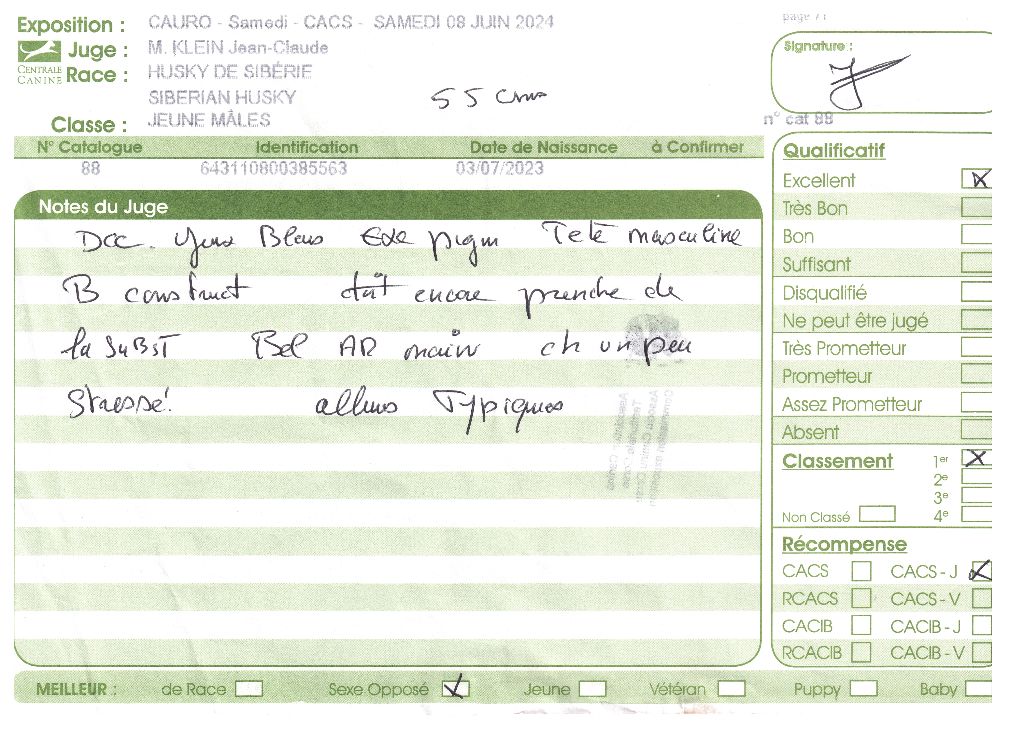 page 71
Exposition : CAURO - Samedi - CACS - SAMEDI 08 JUIN 2024
Juge : M. KLEIN Jean-Claude
CENTRALE CANINE
Race : HUSKY DE SIBÉRIE
SIBERIAN HUSKY
55 cms
Classe : JEUNE MÂLES
Signature :
n° cat 88
N° Catalogue Identification Date de Naissance à Confirmer
88 643110800385563 03/07/2023
Notes du Juge
DCC. Yeux Bleus Exe pigm Tete masculine
B construct doit encore prendre de
la SUBST Bel AR main ch un peu
Stressé! allures Typiques
Qualificatif
Excellent X
Très Bon
Bon
Suffisant
Disqualifié
Ne peut être jugé
Très Prometteur
Prometteur
Assez Prometteur
Absent
Classement 1er X
2e
3e
Non Classé 4e
Récompense
CACS CACS - J X
RCACS CACS - V
CACIB CACIB - J
RCACIB CACIB - V
MEILLEUR : de Race Sexe Opposé Jeune Vétéran Puppy Baby